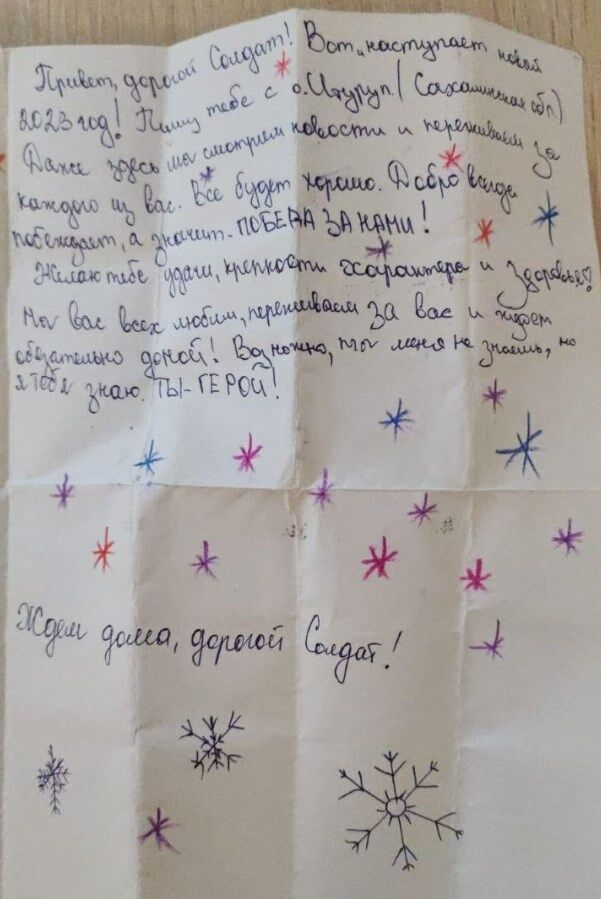 Привет, дорогой Солдат! Вот, наступает новый
2023 год! Пишу тебе с о.Итуруп (Сахалинская обл.)
Даже здесь мы смотрим новости и переживаем за
каждого из вас. Все будет хорошо. Добро всегда
побеждает, а значит - ПОБЕДА ЗА НАМИ!
Желаю тебе удачи, крепкости характера и здоровья♡
Мы вас всех любим, переживаем за вас и ждем
обязательно домой! Возможно, ты меня не знаешь, но
я тебя знаю. ТЫ-ГЕРОЙ!
Ждем дома, дорогой Солдат!